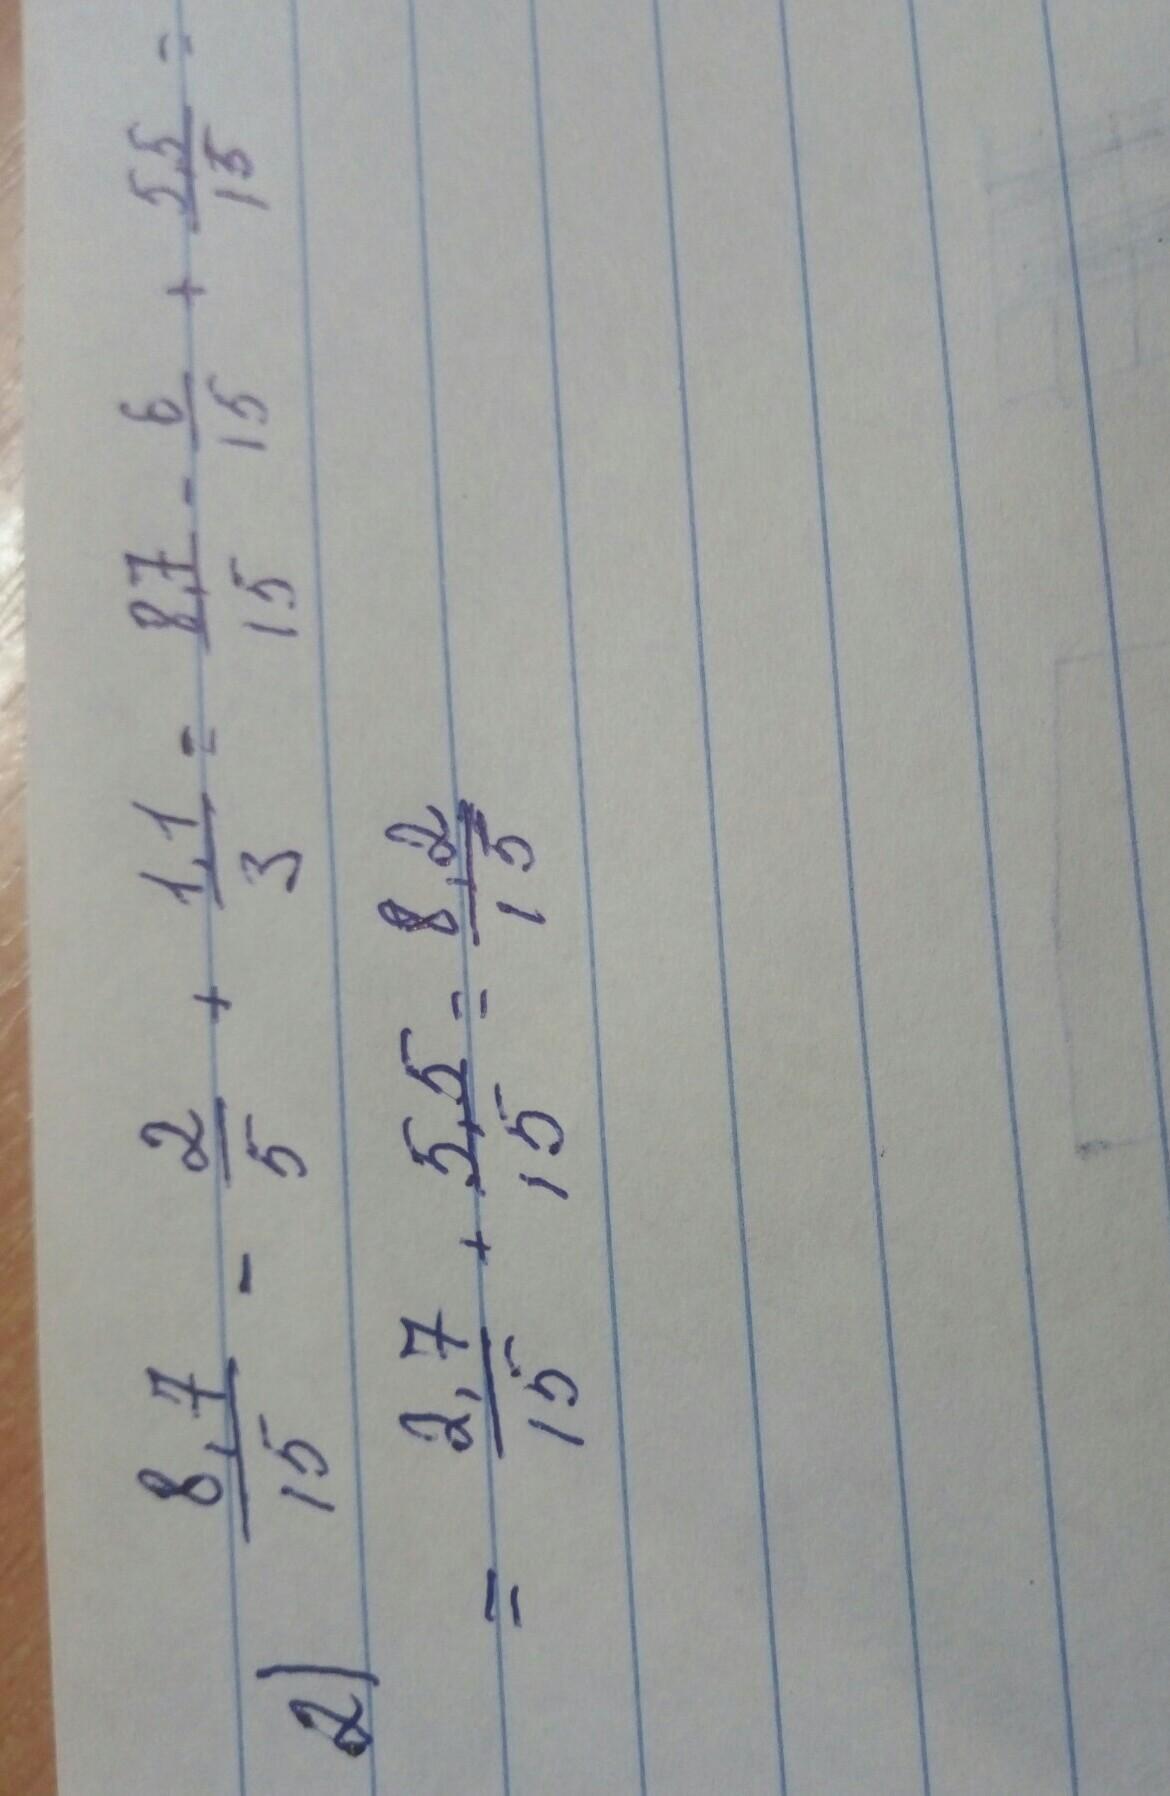 2) 8,7/15 - 2/5 + 1,1/3 = 8,7/15 - 6/15 + 5,5/15 =
= 2,7/15 + 5,5/15 = 8,2/15